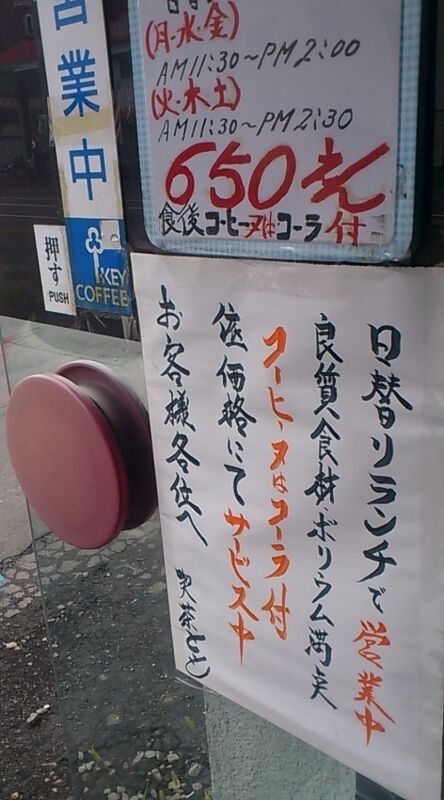 (月・水・金)
AM11:30～PM2:00
(火・木・土)
AM11:30～PM2:30
650えん
食後コーヒー又はコーラ付
営業中
押す
PUSH
KEY
COFFEE
日替リランチで営業中
良質食材・ボリウム満実
コーヒー又はコーラ付
低価格にてサービス中
お客様各位へ
喫茶とも